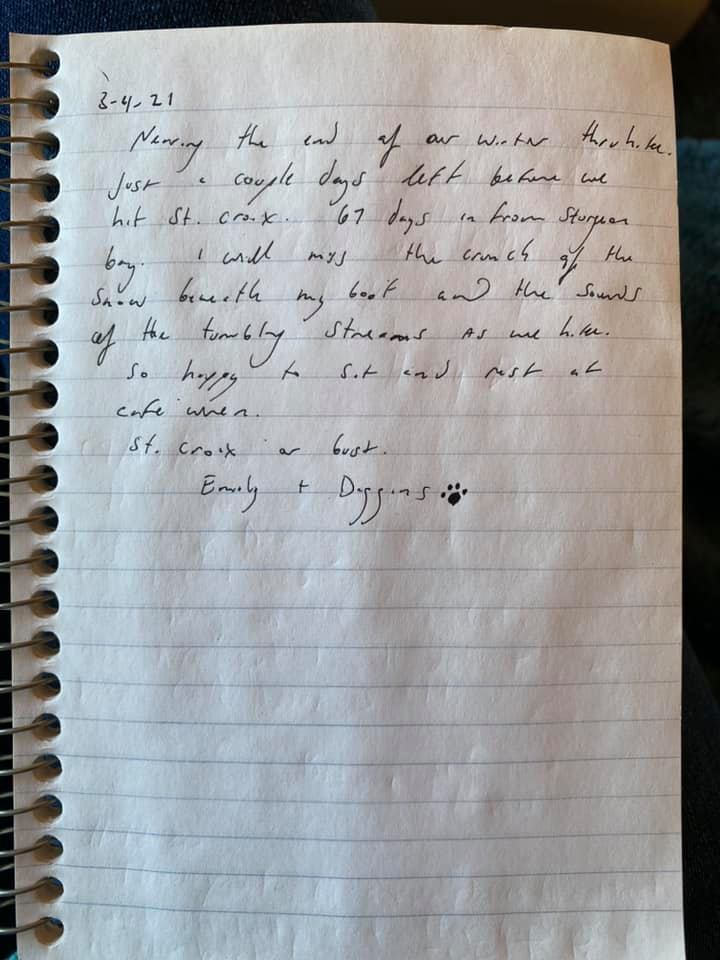 3-4-21
Nearing the end of our winter thru hike.
Just a couple days left before we
hit St. Croix. 67 days in from Sturgeon
bay. I will miss the crunch of the
snow beneath my boot and the sounds
of the tumbling streams as we hike.
So happy to sit and rest at
cafe wren.
St. Croix or bust.
Emily + Diggins